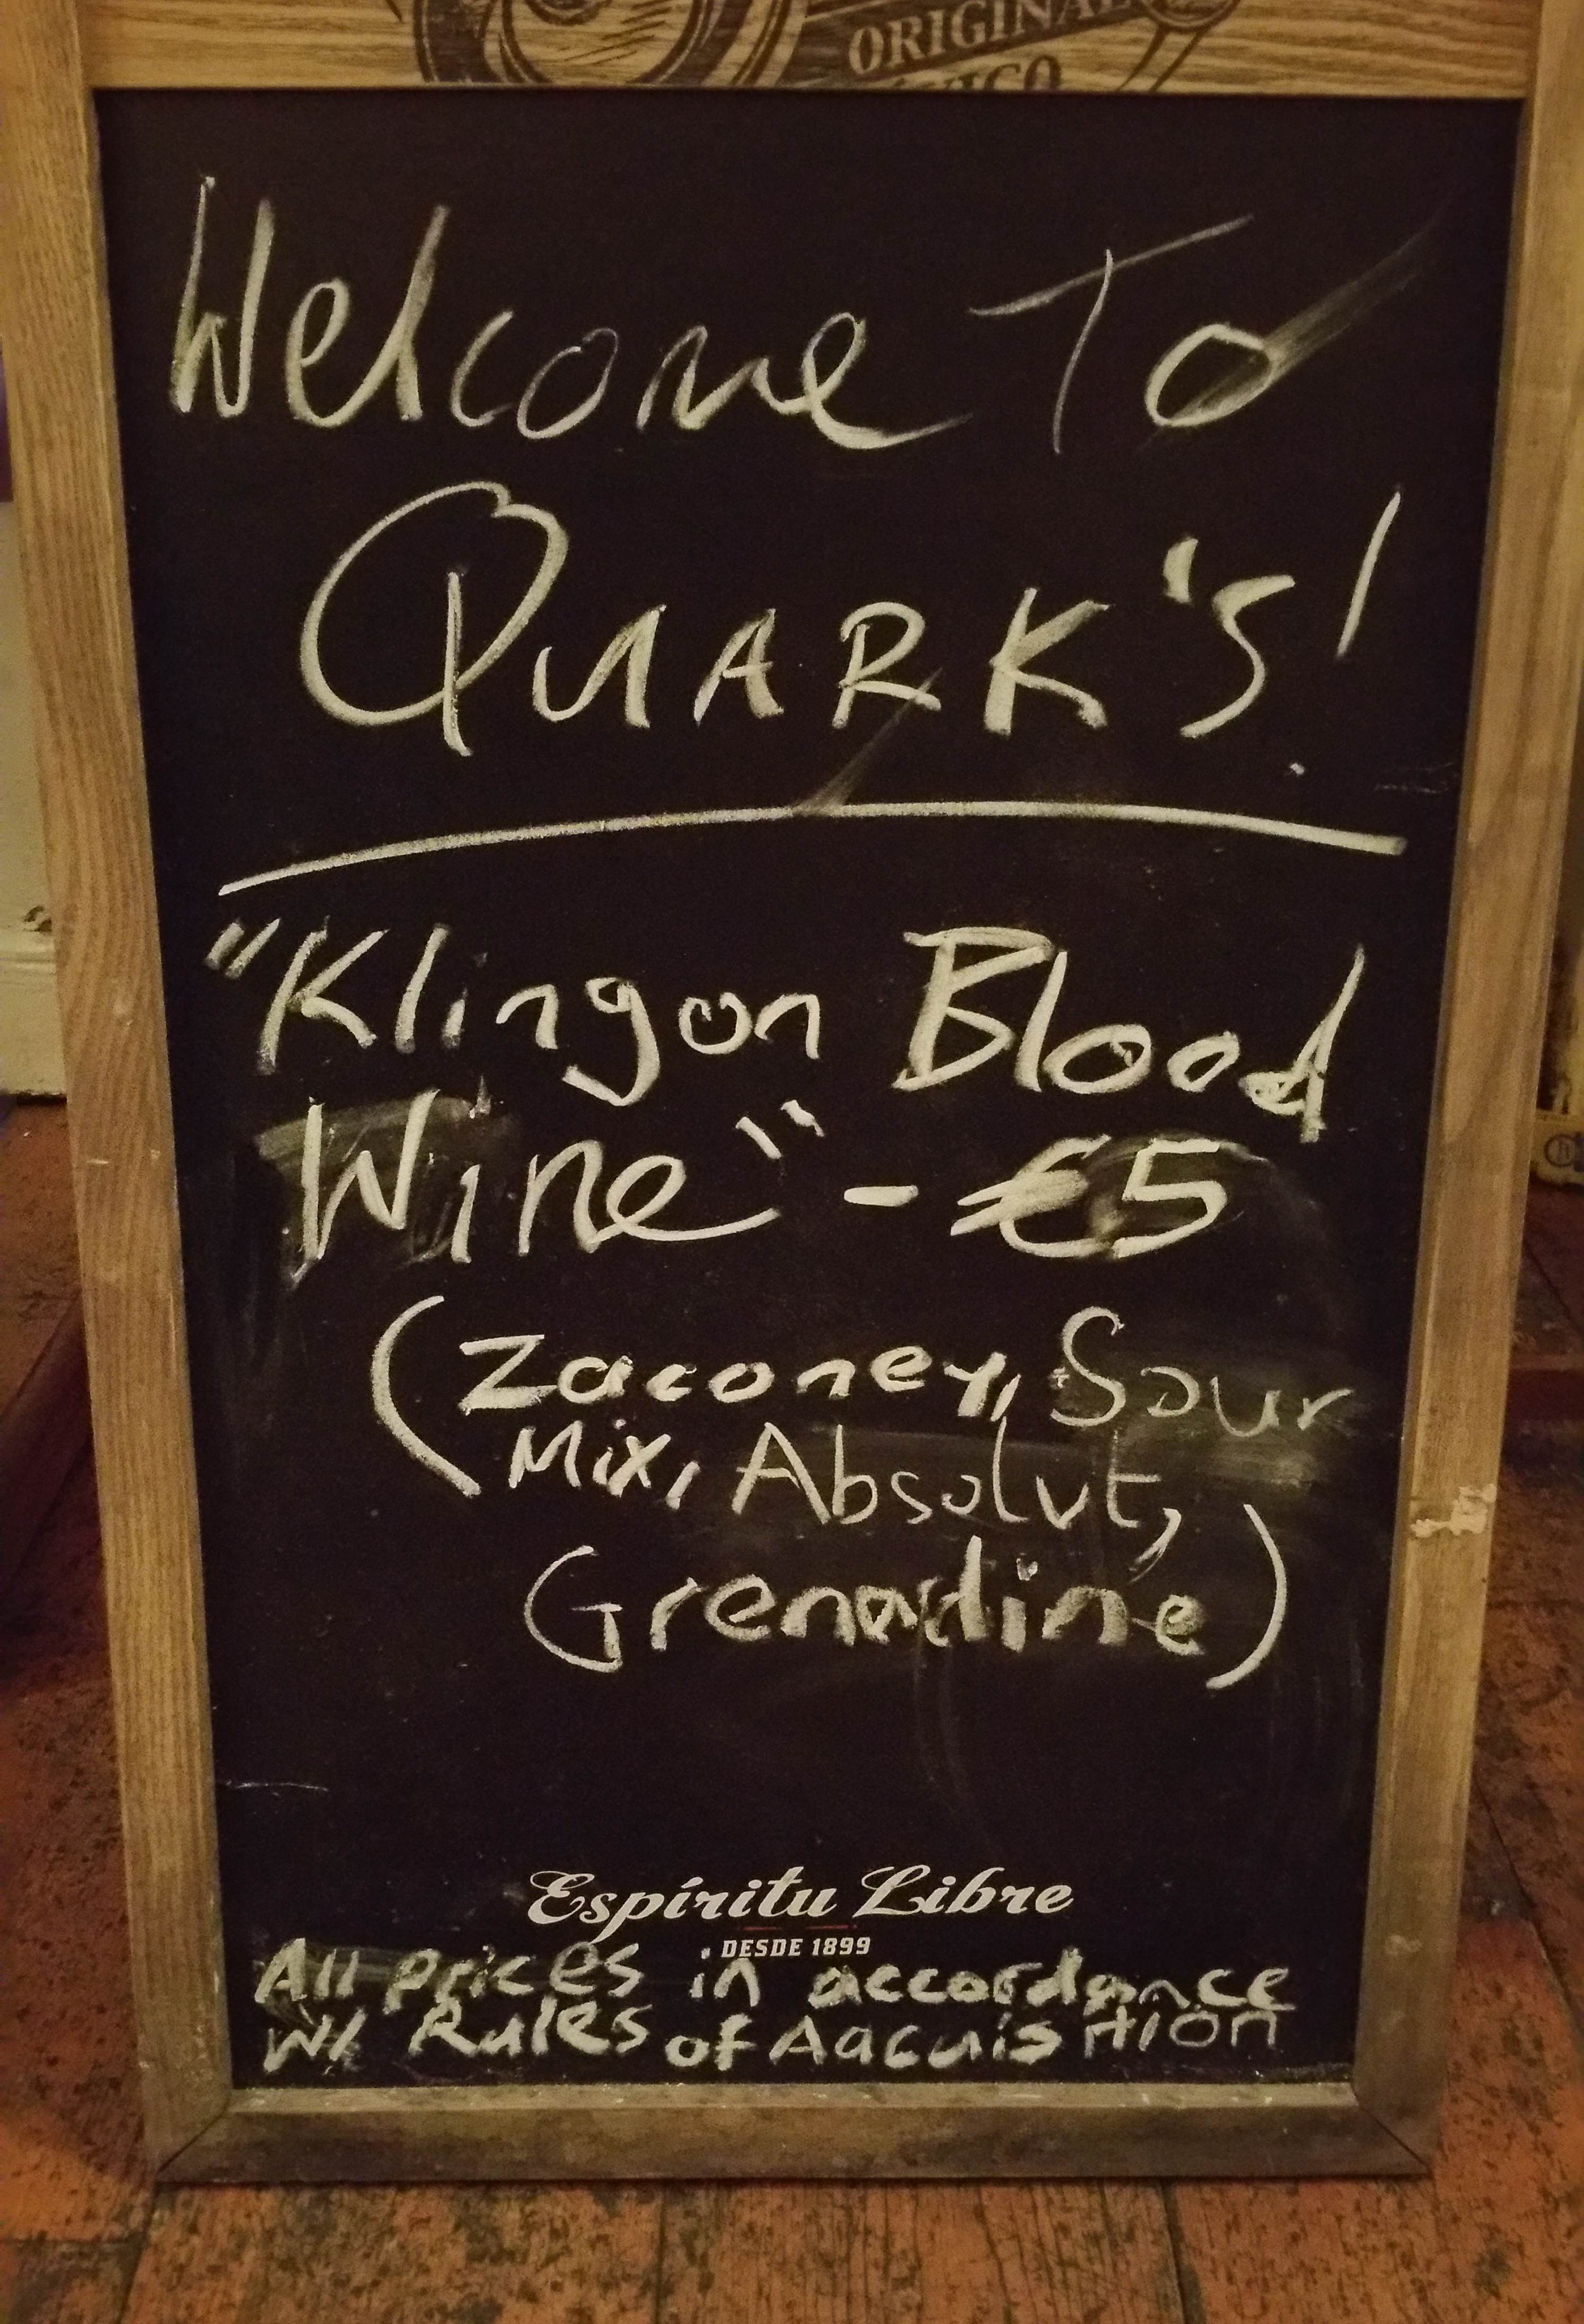 ORIGINAL
Welcome To
QUARK's!
"Klingon Blood
Wine" - €5
(Zaconey, Sour
Mix, Absolut,
Grenadine)
Espíritu Libre
DESDE 1899
All prices in accordance
W/ Rules of Aqcuisition